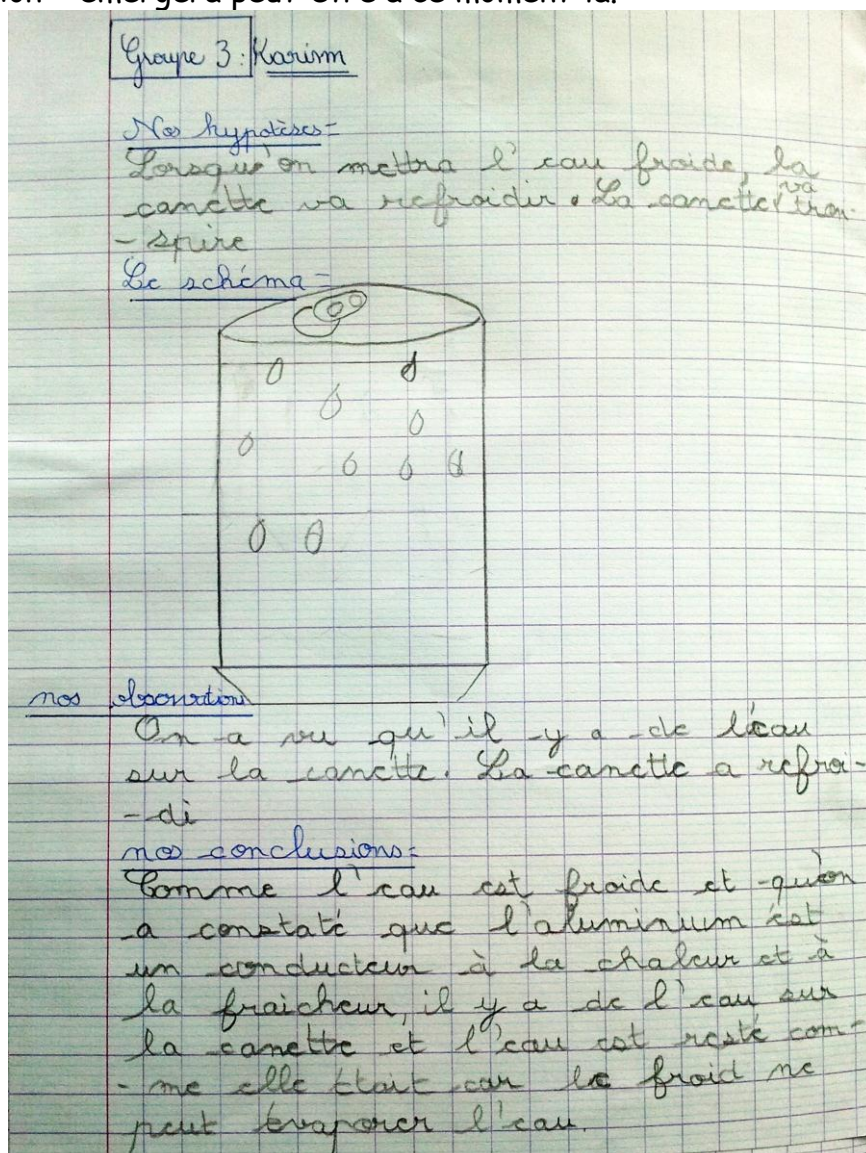 émergera peut-être à ce moment-là.
Groupe 3 : Karim
Nos hypotèses =
Lorsqu'on mettra l'eau froide, la
canette va refroidir. La canette va tran-
-spire
Le schéma =
nos observation
On a vu qu'il y a de l'eau
sur la canette. La canette a refroi-
-di
nos conclusions =
Comme l'eau est froide et qu'on
a constaté que l'aluminium est
un conducteur à la chaleur et à
la fraicheur, il y a de l'eau sur
la canette et l'eau est resté com-
-me elle était car le froid ne
peut évaporer l'eau.